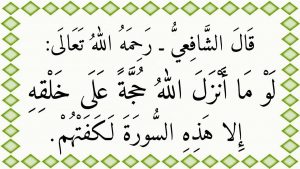 قَالَ الشَّافِعِيُّ ـ رَحِمَهُ اللهُ تَعَالَى:
لَوْ مَا أَنْزَلَ اللهُ حُجَّةً عَلَى خَلْقِهِ
إِلا هَذِهِ السُّورَةَ لَكَفَتْهُمْ.